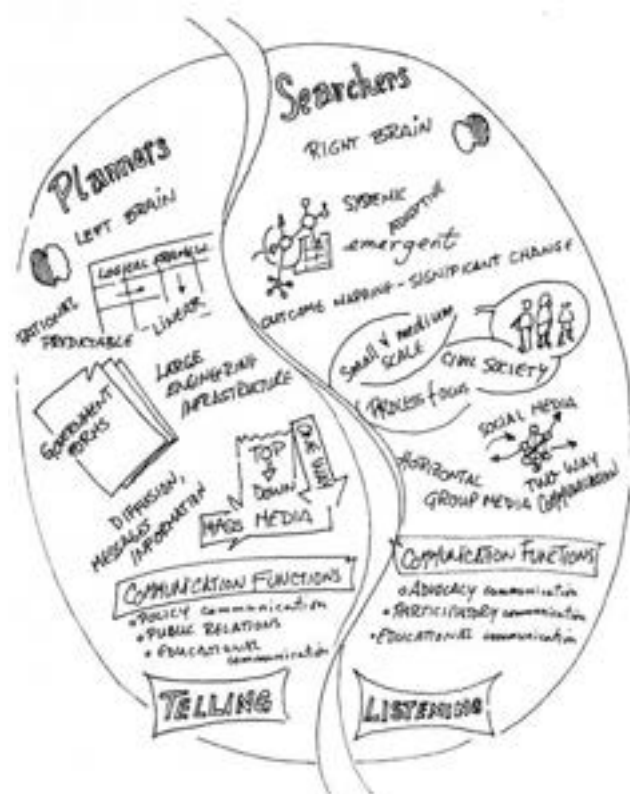 Planners
LEFT BRAIN
LOGICAL FRAMEW.
RATIONAL
PREDICTABLE
LINEAR
LARGE
ENGINEERING
INFRASTRUCTURE
GOVERNMENT
FORMS
DIFFUSION,
MESSAGES
INFORMATION
TOP
DOWN
ONE WAY
MASS MEDIA
COMMUNICATION FUNCTIONS
• POLICY communication
• PUBLIC RELATIONS
• EDUCATIONAL
communication
TELLING
Searchers
RIGHT BRAIN
SYSTEMIC
ADAPTIVE
emergent
OUTCOME MAPPING - SIGNIFICANT CHANGE
Small & medium
SCALE
CIVIL SOCIETY
PROCESS FOCUS
SOCIAL MEDIA
HORIZONTAL
GROUP MEDIA
TWO WAY
COMMUNICATION
COMMUNICATION FUNCTIONS
• ADVOCACY communication
• PARTICIPATORY communication
• EDUCATIONAL communication
LISTENING